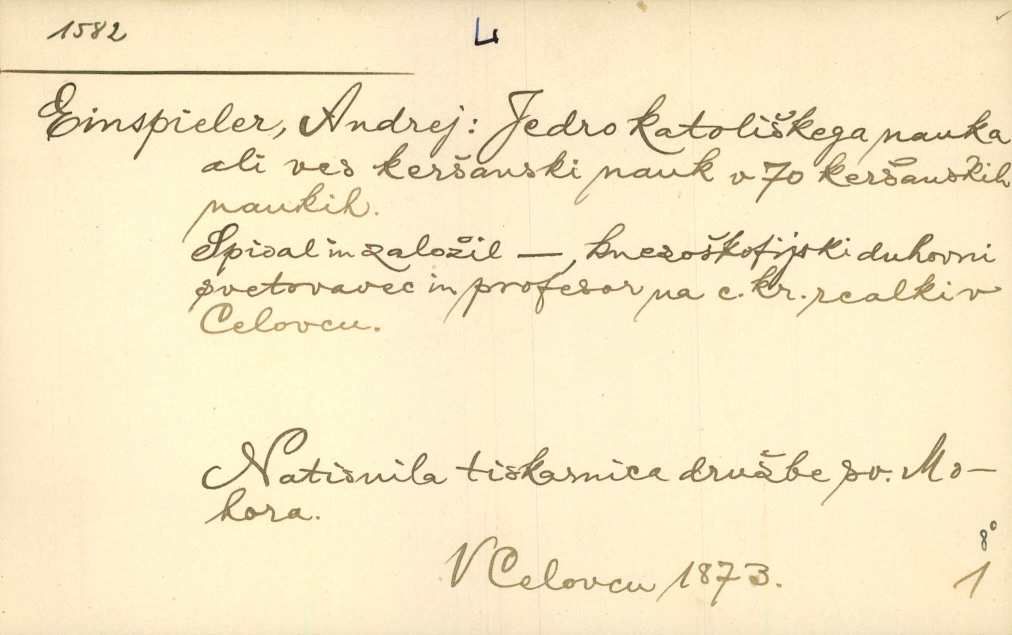 1582
L
Einspieler, Andrej: Jedro katoliškega nauka
ali ves keršanski nauk v 70 keršanskih
naukih.
Spisal in založil —, knezoškofijski duhovni
svetovavec in profesor na c. kr. realki v
Celovcu.
Natisnila tiskarnica družbe sv. Mo-
hora.
V Celovcu 1873.
8°
1